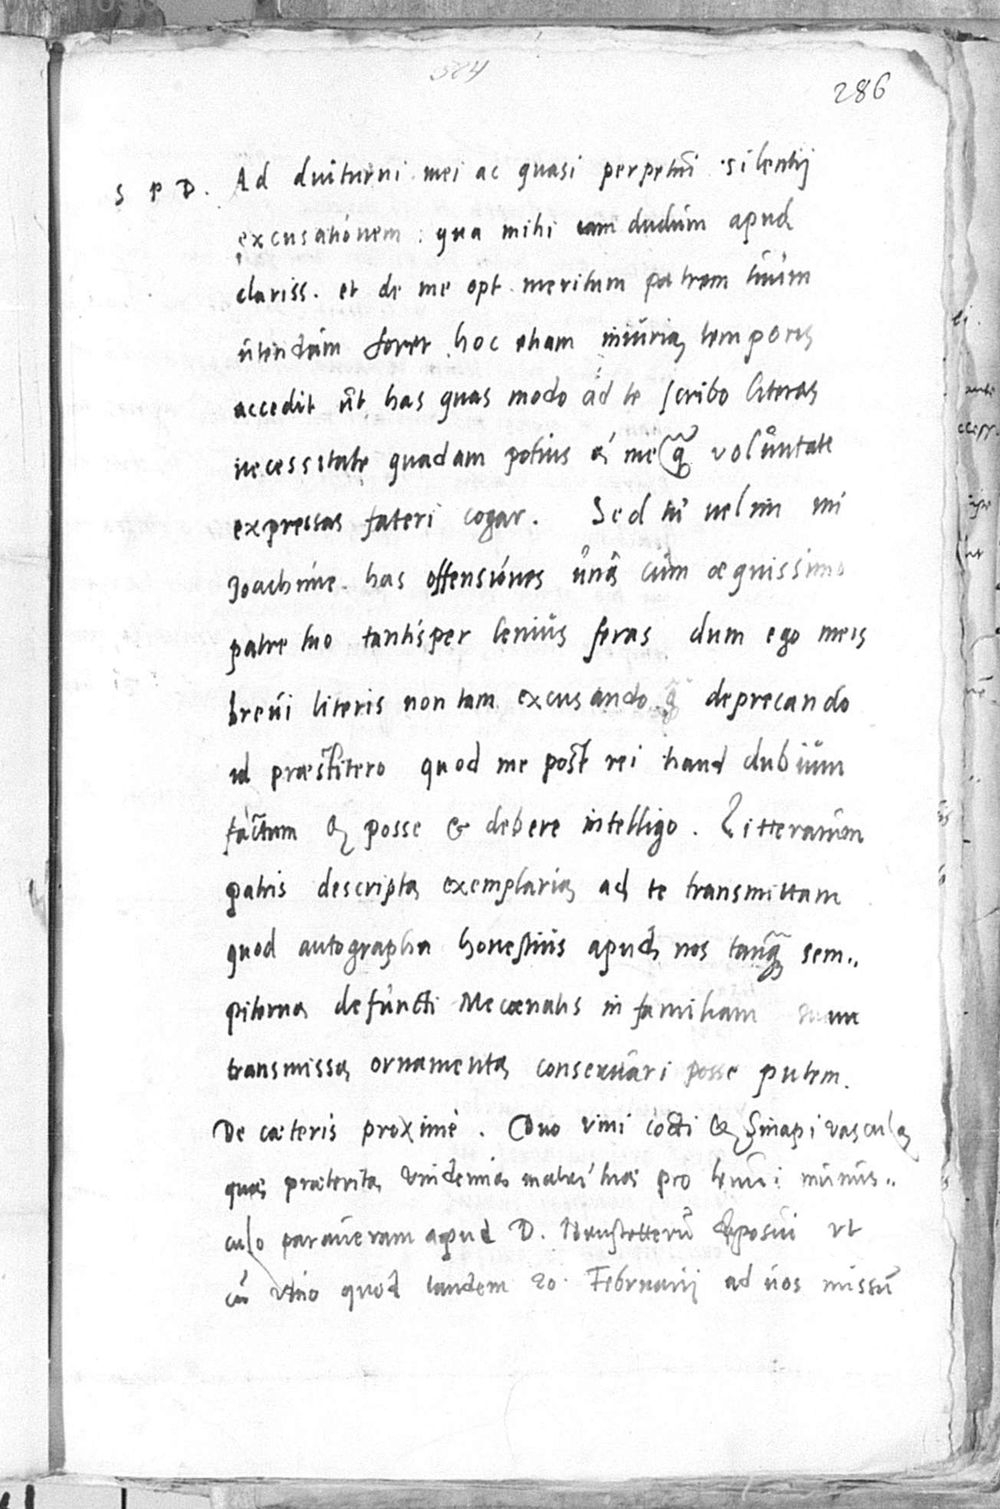 524
286
S P D. Ad diuturni mei ac quasi perpetui silentij
excusationem: qua mihi iam dudum apud
clariss. et de me opt. meritum patrem tuum
utendum foret hoc etiam iniuria temporis
accedit ut has quas modo ad te scribo literas
necessitate quadam potius à me q̃ voluntate
expressas fateri cogar. Sed tu uelim mi
Joachime has offensiones unà cum æquissimo
patre tuo tantisper leniùs feras dum ego meis
breui literis non tam excusando q̃ deprecando
id præstitero quod me post rei haud dubium
factum & posse & debere intelligo. Litterarum
patris descripta exemplaria ad te transmittam
quod autographa honestius apud nos tanq̃ sem„
piterna defuncti Mecænatis in familiam suam
transmissa ornamenta conseruari posse putem.
De cæteris proximè. Duo vini cocti & Sinapi vascula
quæ præterita vindemia matri tuæ pro tenui munus„
culo paraueram apud D. Neustetterũ deposui vt
cũ vino quod tandem 20. Februarij ad uos missũ